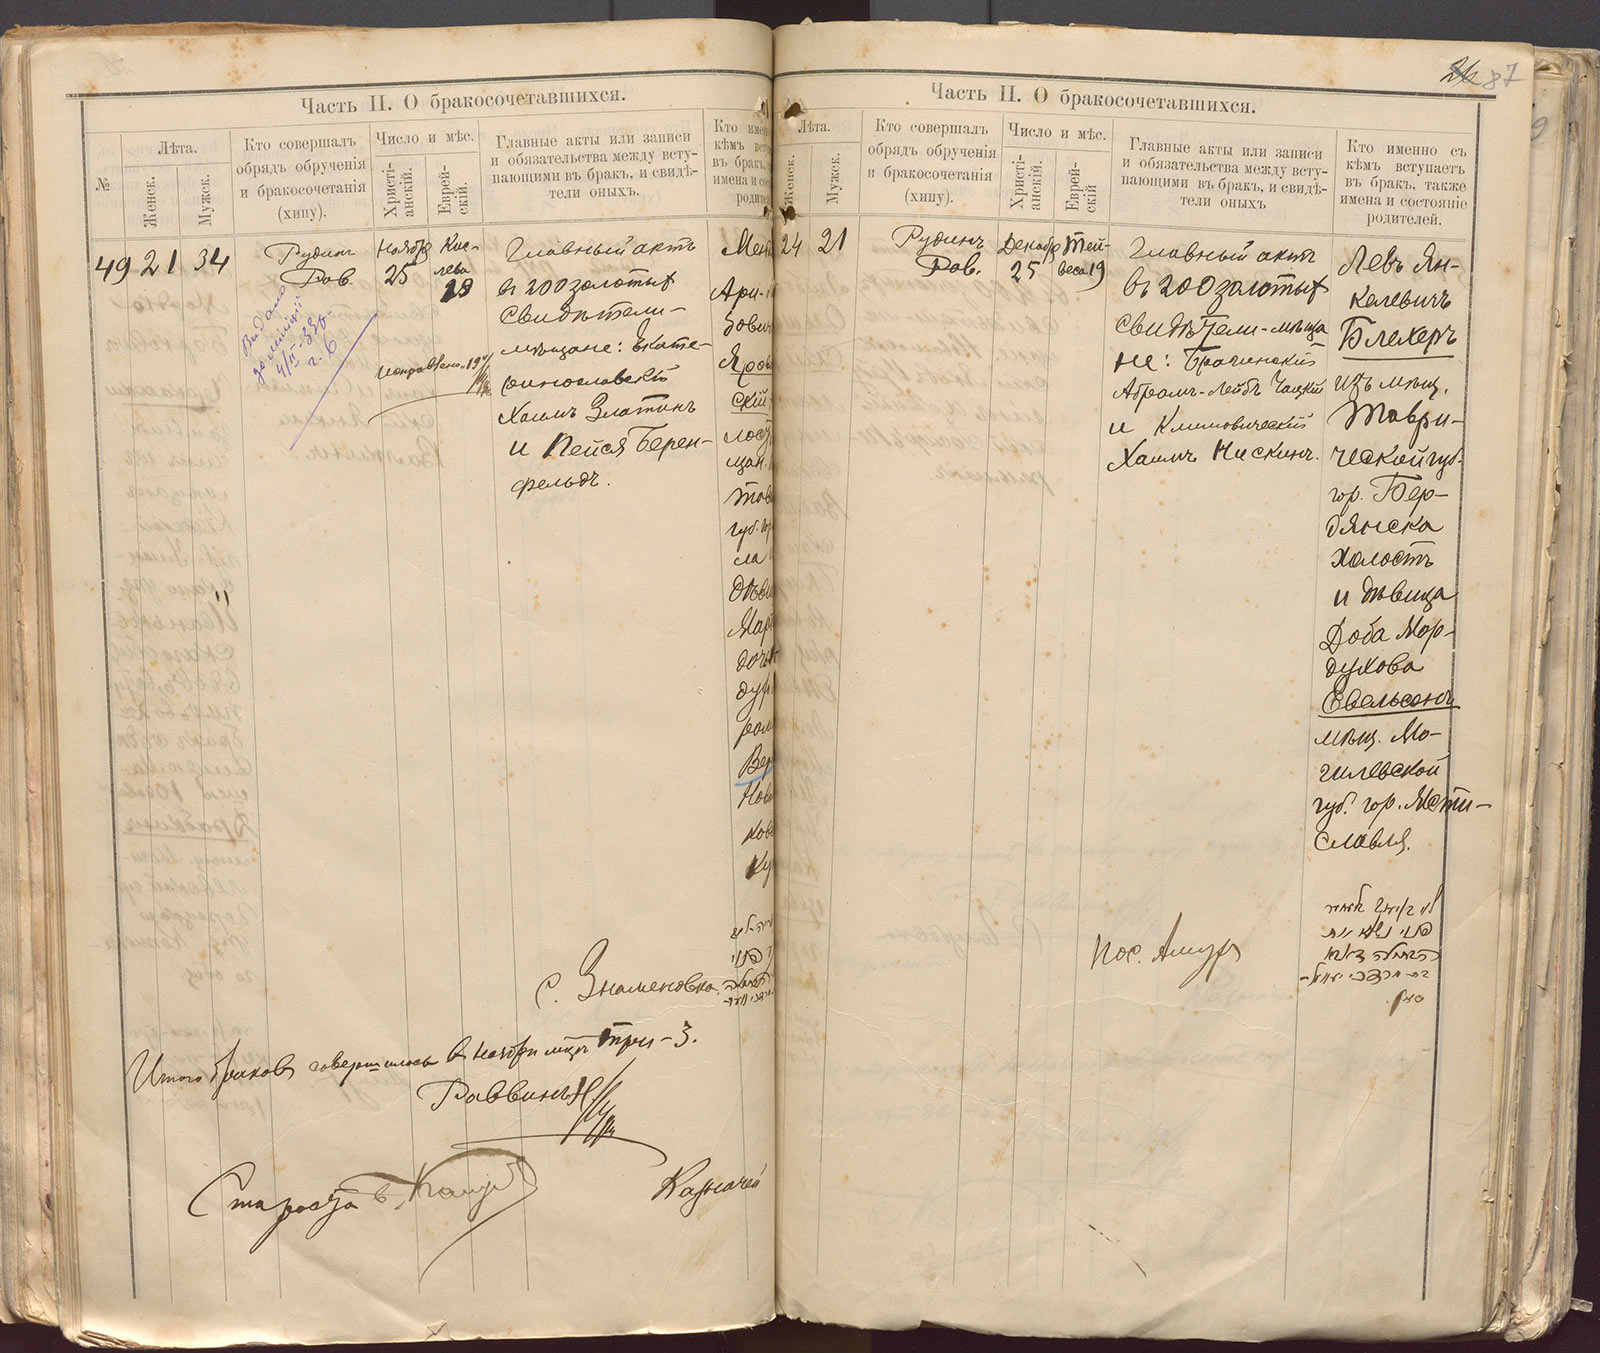 Часть II. О бракосочетавшихся.
№
Лѣта.
Женск.
Мужск.
Кто совершалъ
обрядъ обрученія
и бракосочетанія
(хипу).
Число и мѣс.
Христі-
анскій.
Еврей-
скій.
Главные акты или записи
и обязательства между всту-
пающими въ бракъ, и свидѣ-
тели оныхъ.
Кто имен
кѣмъ всту
въ бракъ,
имена и со
родител
49
21
34
Рудинъ
Рав.
Ноября
25
Кис-
лева
Главный актъ
въ 200 золотых
свидѣтели-
мѣщане: Екате-
ринославскій
Хаимъ Златинъ
и Пейся Берен-
фельдъ.
Видано
4/II-33р.
Мен
Ари-
бович
Яров
ский
мщан.
Тав
губ.
сла
дѣв
Мар
дочь
дух
Вер
Нов
ков
Ку
с. Знаменовка
Итого браковъ совершилось въ ноябрѣ мцѣ три-3.
Раввинъ
Староста
Казначей
87
Часть II. О бракосочетавшихся.
Лѣта.
Женск.
Мужск.
Кто совершалъ
обрядъ обрученія
и бракосочетанія
(хипу).
Число и мѣс.
Христі-
анскій.
Еврей-
скій
Главные акты или записи
и обязательства между всту-
пающими въ бракъ, и свидѣ-
тели оныхъ
Кто именно съ
кѣмъ вступаетъ
въ бракъ, также
имена и состояніе
родителей.
24
21
Рудинъ
Рав.
Декабр
25
Тей-
веса 19
Главный актъ
въ 200 золотых
свидѣтели-мѣща
не: Брагинскій
Абрамъ-Лейбъ Чацкій
и Климовическій
Хаимъ Нискинъ.
Левъ Ян-
келевичъ
Блехеръ
изъ мѣщ.
Таври-
ческой губ.
гор. Бер-
дянска
холостъ
и дѣвица
Доба Мор-
духова
Евельсонъ
мѣщ. Мо-
гилевской
губ. гор. Мсти-
славля.
пос. Амур